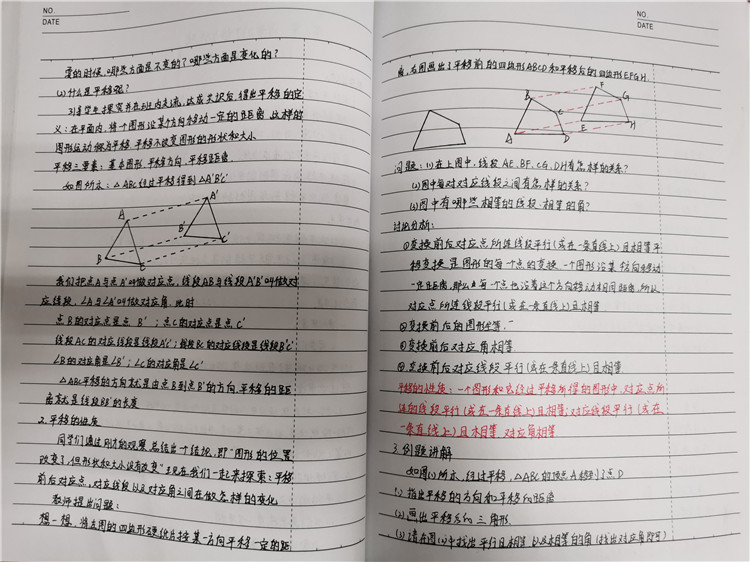 NO.
DATE
变的时候，哪些方面是不变的？哪些方面是变化的？
(2)什么是平移呢？
义：在平面内，将一个图形沿某个方向移动一定的距离，这样的
图形运动称为平移 平移不改变图形的形状和大小
平移三要素：基本图形，平移方向，平移距离
如图所示：△ABC经过平移得到△A'B'C'
A
A'
B'
B
C
C'
我们把点A与点A'叫做对应点，线段AB与线段A'B'叫做对
应线段，∠A与∠A'叫做对应角，此时
点B的对应点是点B'；点C的对应点是点C'
线段AC的对应线段是线段A'C'；线段BC的对应线段是线段B'C'
∠B的对应角是∠B'；∠C的对应角是∠C'
△ABC平移的方向就是由点B到点B'的方向，平移的距
离就是线段BB'的长度
2.平移的性质
同学们通过刚才的观察，总结出一个结论，即"图形的位置
改变了，但形状和大小没有改变"现在我们一起来探索：平移
前后对应点，对应线段以及对应角之间在做怎样的变化
教师提出问题：
想一想，将左图的四边形硬纸片按某一方向平移一定的距
NO.
DATE
离，右图画出了平移前的四边形ABCD和平移后的四边形EFGH.
F
B
G
C
E
H
A
D
问题：(1)在上图中，线段AE、BF、CG、DH有怎样的关系？
(2)图中每对对应线段之间有怎样的关系？
(3)图中有哪些相等的线段、相等的角？
讨论分析：
①变换前后对应点所连线段平行(或在一条直线上)且相等平
移变换是图形的每个点的变换 一个图形沿某一方向移动
一定距离，那么每个点也沿着这个方向移动相同距离，所以
对应点所连线段平行(或在一条直线上)且相等
②变换前后的图形全等；
③变换前后对应角相等
④变换前后对应线段平行(或在一条直线上)且相等
平移的性质：一个图形和它经过平移所得的图形中，对应点所
连的线段平行(或在一条直线上)且相等；对应线段平行(或在
一条直线上)且相等，对应角相等
3.例题讲解
如图(1)所示，经过平移，△ABC的顶点A移到了点D
(1)指出平移的方向和平移的距离
(2)画出平移后的三角形